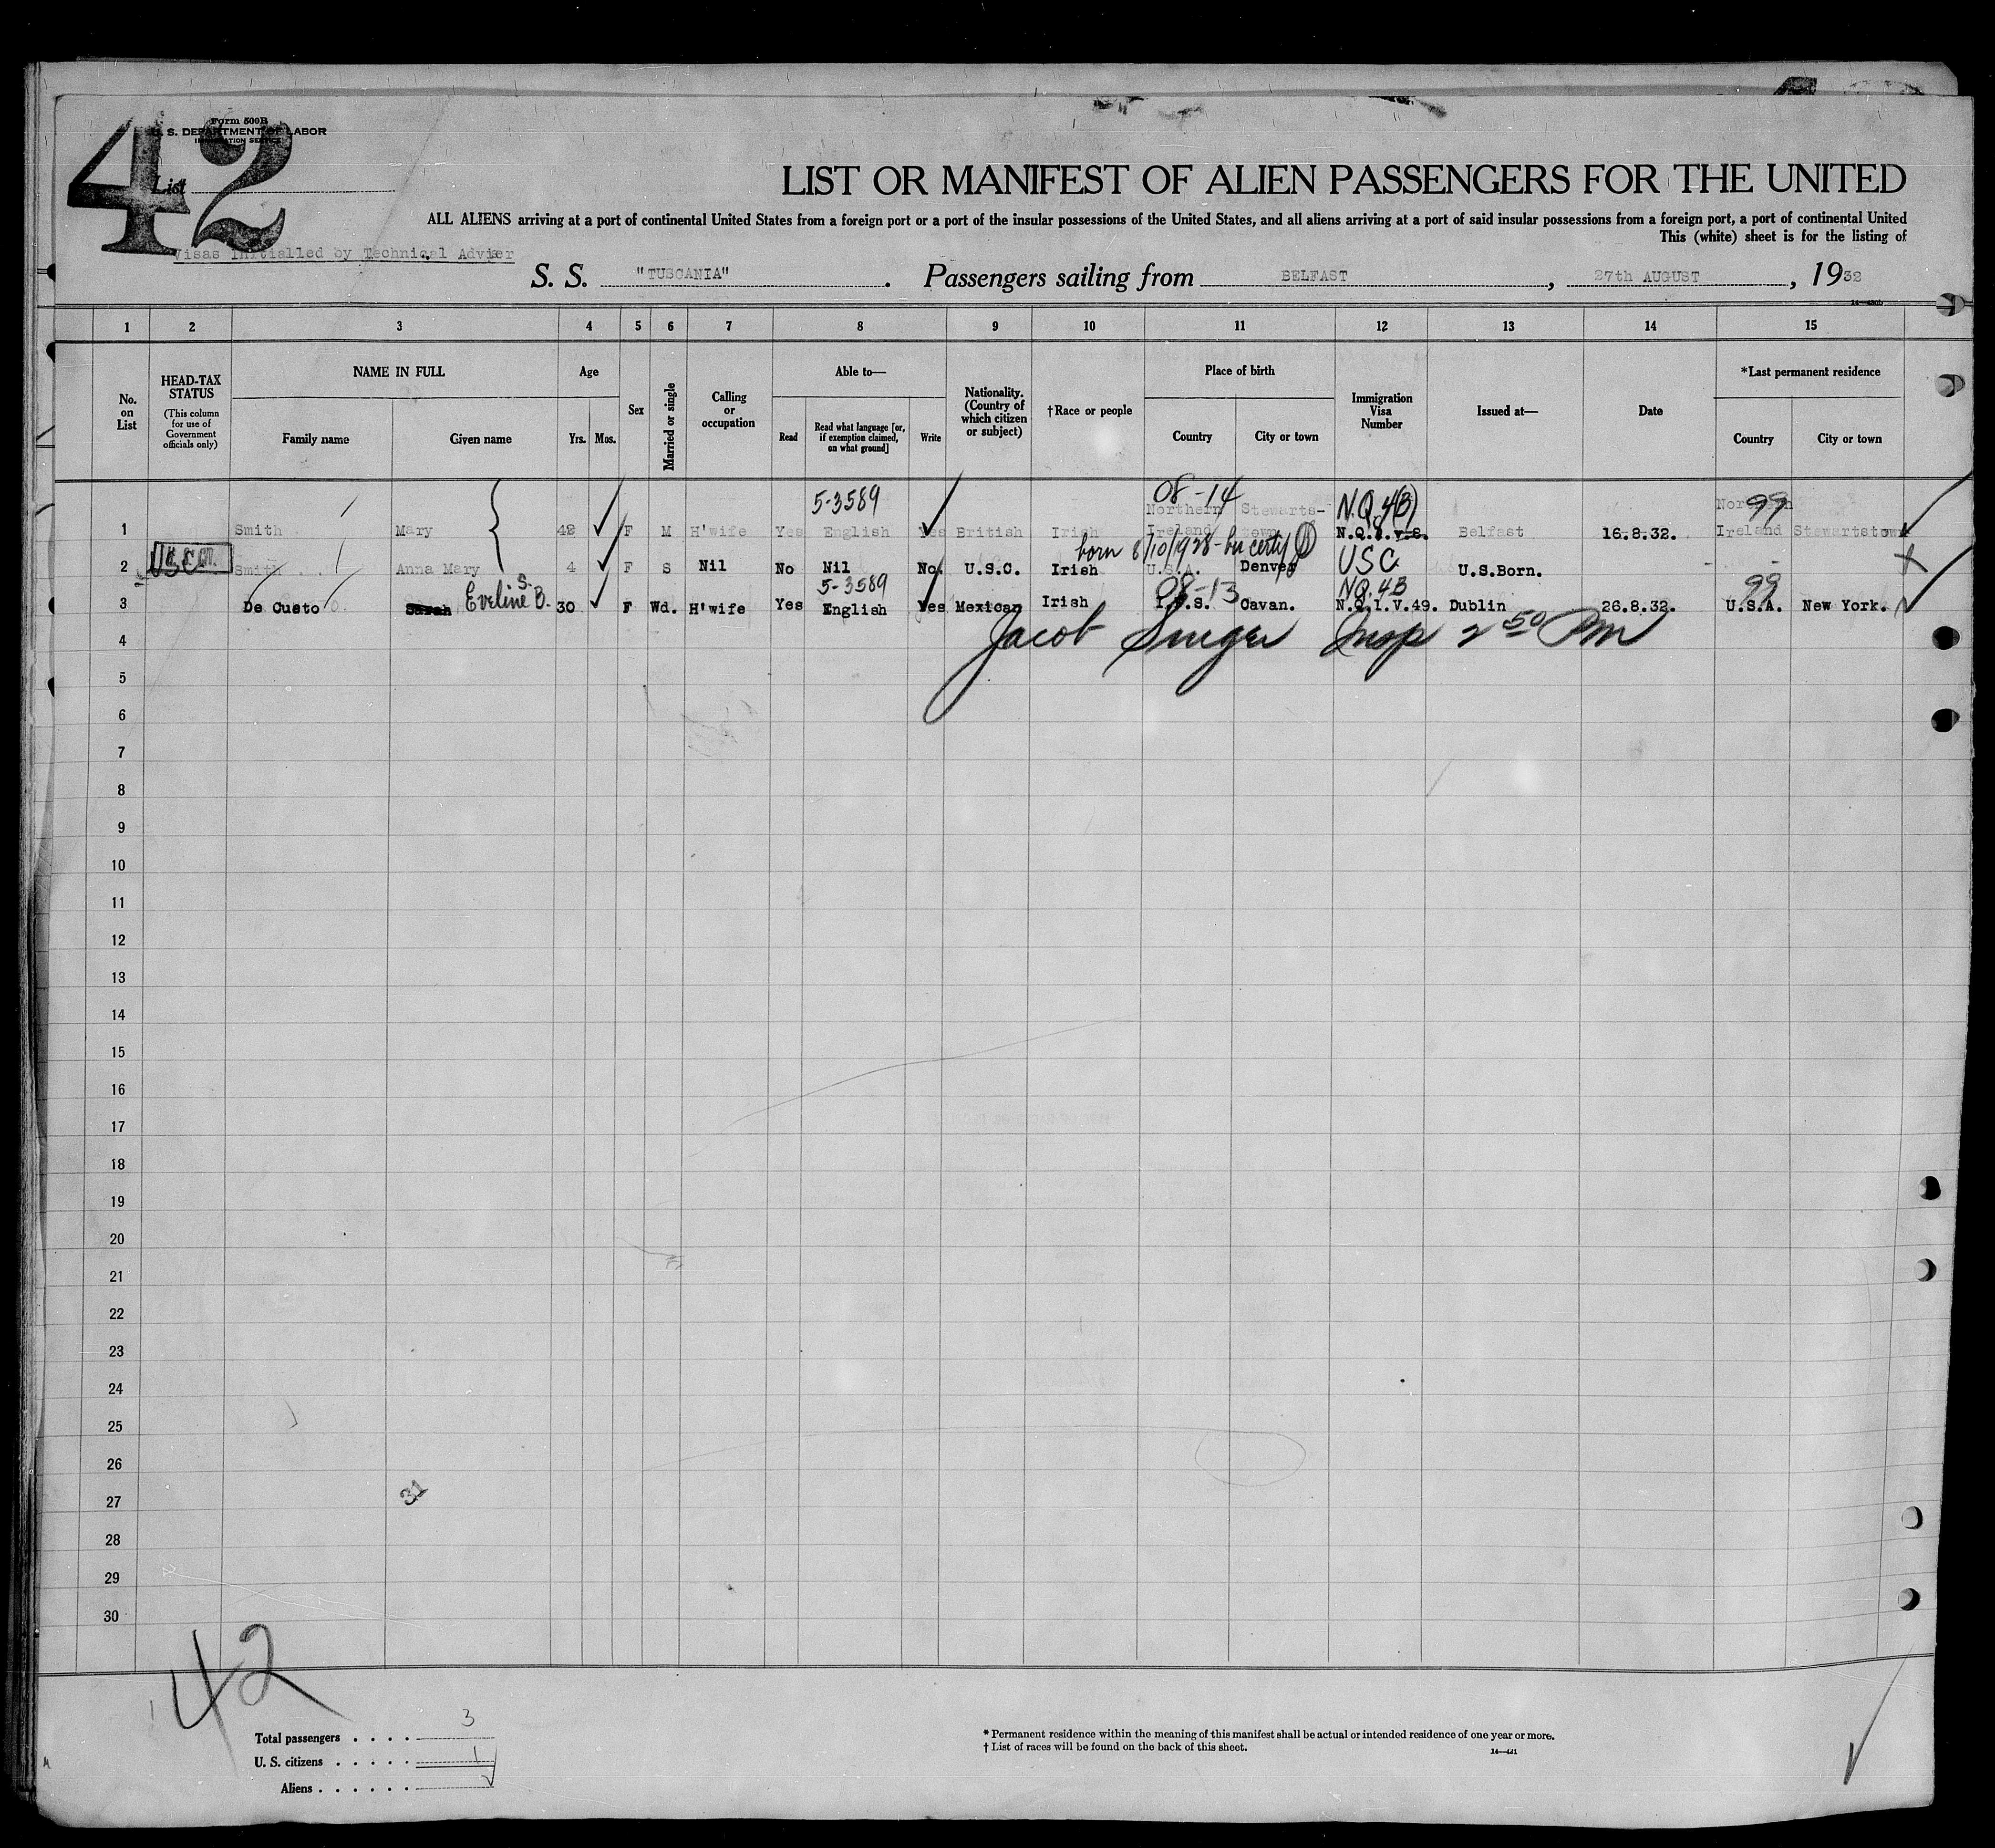 42
Form 500B
U. S. DEPARTMENT OF LABOR
IMMIGRATION SERVICE
List
LIST OR MANIFEST OF ALIEN PASSENGERS FOR THE UNITED
ALL ALIENS arriving at a port of continental United States from a foreign port or a port of the insular possessions of the United States, and all aliens arriving at a port of said insular possessions from a foreign port, a port of continental United
This (white) sheet is for the listing of
Visas initialled by Technical Adviser
S. S. "TUSCANIA". Passengers sailing from BELFAST, 27th AUGUST, 1932
1 2 3 4 5 6 7 8 9 10 11 12 13 14 15
No. on List
HEAD-TAX STATUS
(This column for use of Government officials only)
NAME IN FULL
Family name Given name
Age
Yrs. Mos.
Sex
Married or single
Calling or occupation
Able to—
Read Read what language [or, if exemption claimed, on what ground] Write
Nationality. (Country of which citizen or subject)
†Race or people
Place of birth
Country City or town
Immigration Visa Number
Issued at—
Date
*Last permanent residence
Country City or town
5-3589 08-14 N.Q.4(B) 99
1 Smith Mary 42 F M H'wife Yes English Yes British Irish Northern Ireland Stewarts-town Belfast 16.8.32. Northern Ireland Stewartstown
born 8/10/1928 - by certif
2 U.S.C. Smith Anna Mary 4 F S Nil No Nil No. U.S.C. Irish U.S.A. Denver USC U.S.Born. - -
5-3589 08-13 NQ.4B 99
3 De Custo Sarah Eveline S. B. 30 F Wd. H'wife Yes English Yes Mexican Irish Cavan. N.Q.I.V.49. Dublin 26.8.32. U.S.A. New York.
Jacob Singer Insp 2 50 PM
4
5
6
7
8
9
10
11
12
13
14
15
16
17
18
19
20
21
22
23
24
25
26
27
31
28
29
30
42
Total passengers . . . . 3
U. S. citizens . . . . . 1
Aliens . . . . . .
* Permanent residence within the meaning of this manifest shall be actual or intended residence of one year or more.
† List of races will be found on the back of this sheet.
14—441